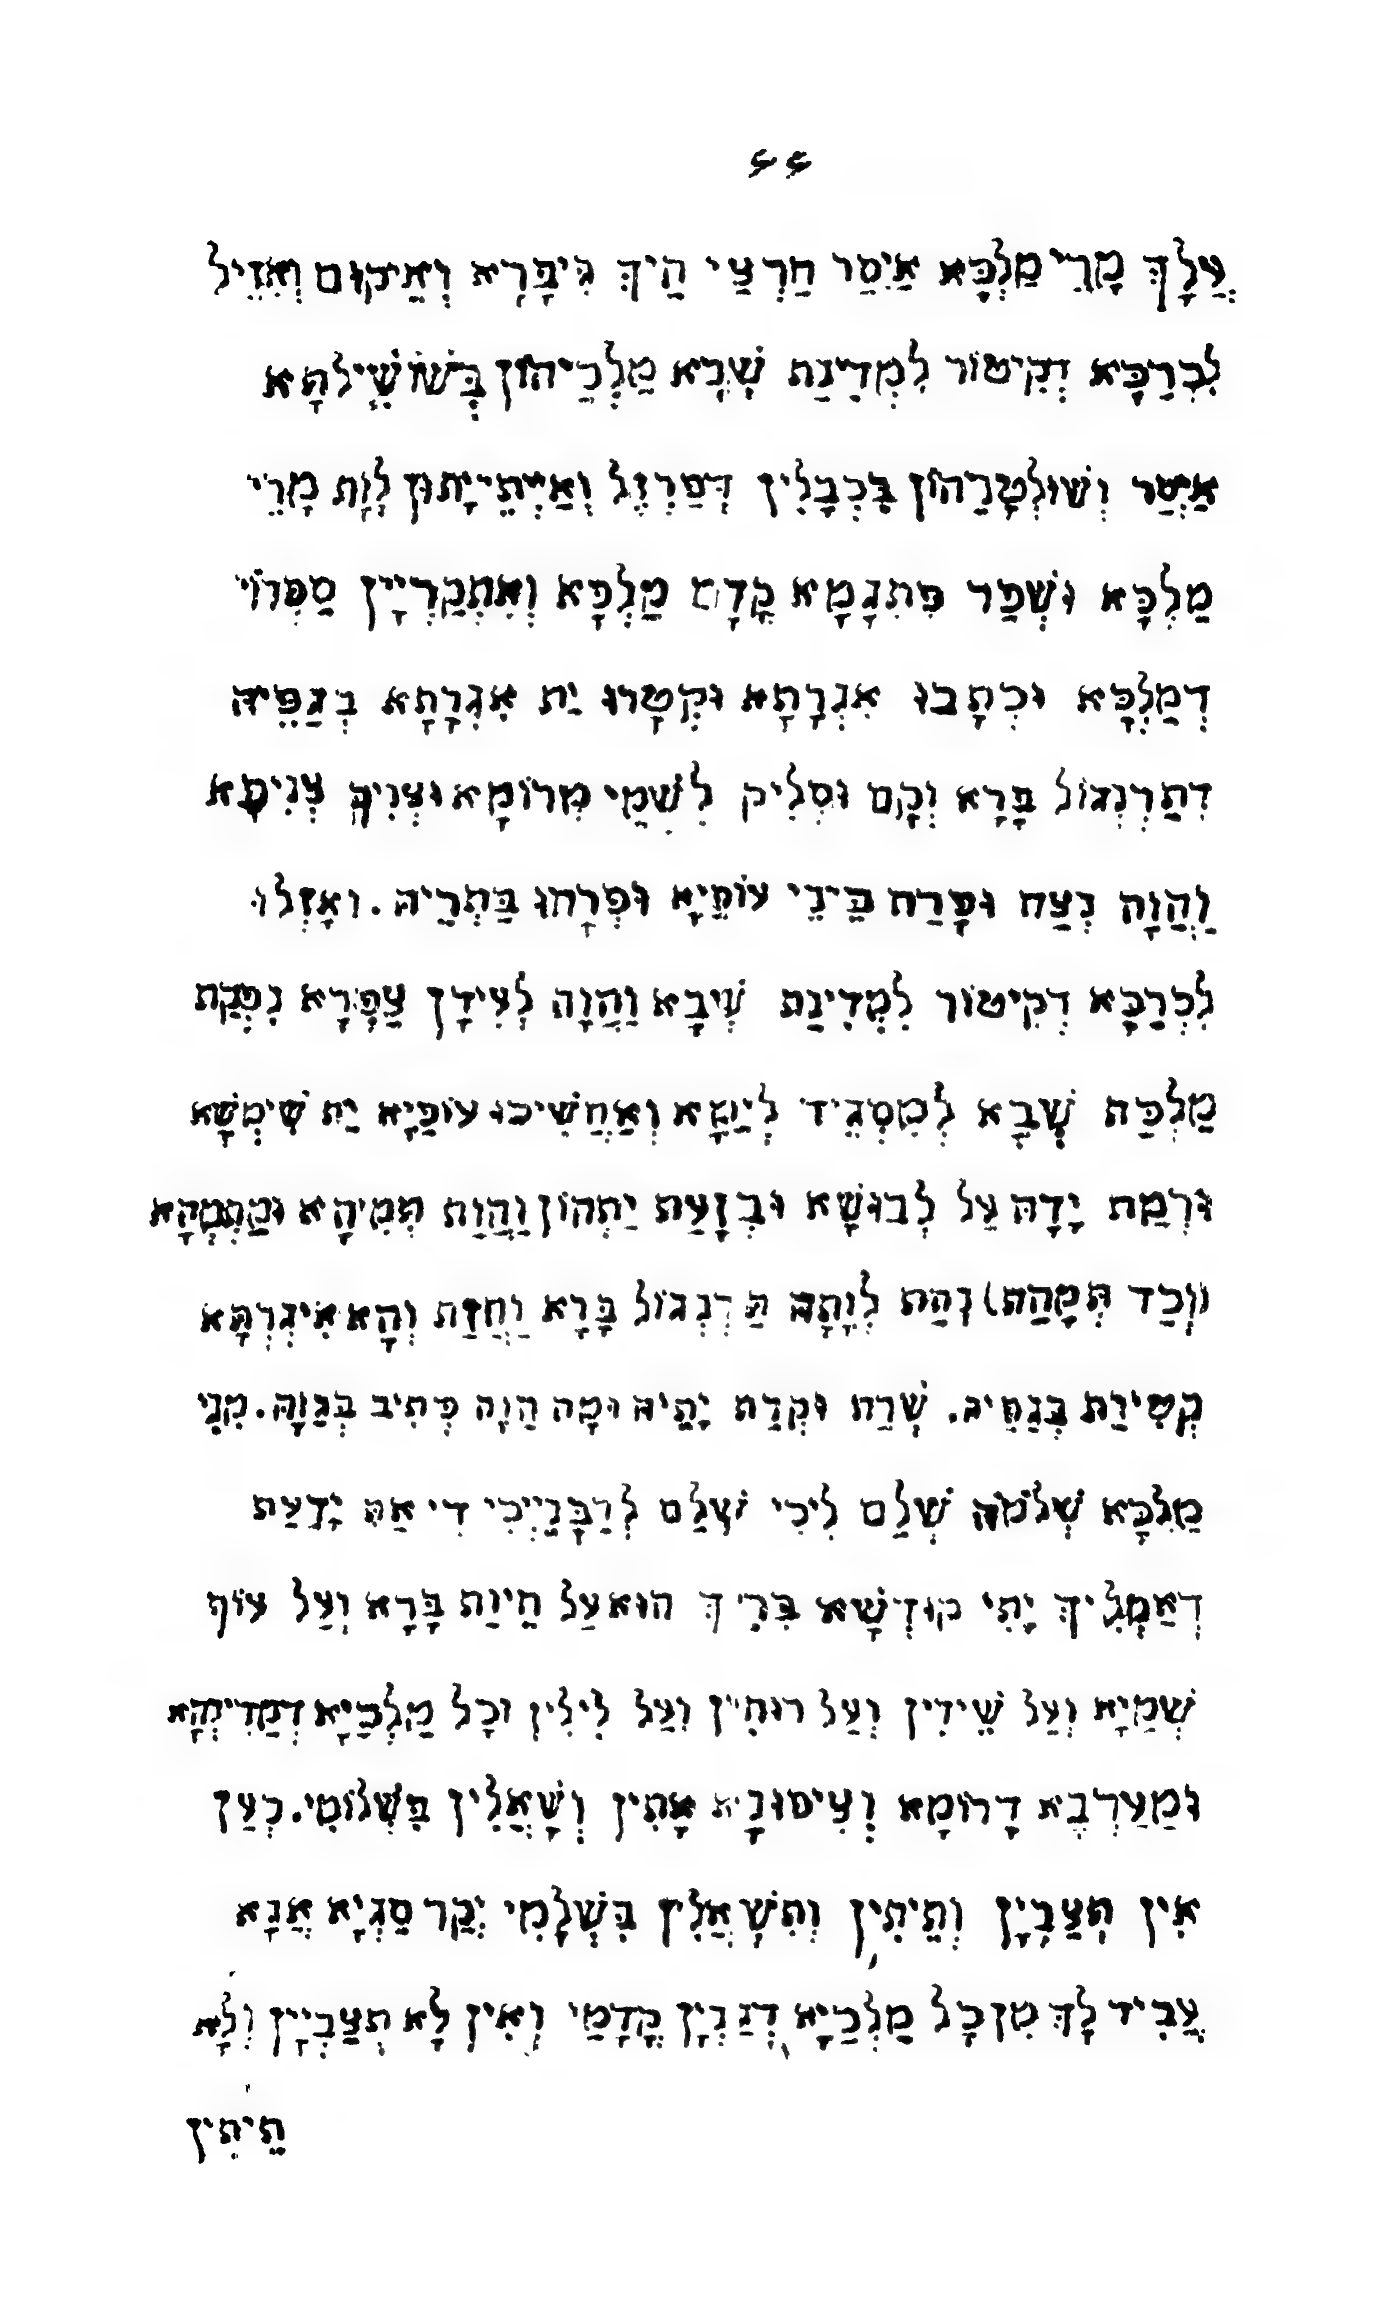 עֲלָךְ מָרִי מַלְכָּא אַיסַר חַרְצַי הֵיךְ גִּיבָּרָא וְאֵיקוּם וְאֵזֵיל
לִכְרַכָּא דְקִיטוֹר לִמְדִינַת שְׁבָא מַלְכֵיהוֹן בְּשׁוֹשֵׁילָתָא
אֵיסַר וְשׁוּלְטָנֵהוֹן בְּכִבְלִין דְּפַרְזֶל וְאַיְתֵי יָתוּן לְוָת מָרִי
מַלְכָּא וּשְׁפַר פִּתְגָמָא קֳדָם מַלְכָּא וְאִתְקַרְיִין סַפְרוֹי
דְמַלְכָּא וּכְתָבוּ אִגַּרְתָּא וּקְטָרוּ יַת אִגַּרְתָּא בְּגַפֵּיהּ
דְתַרְנְגוֹל בָּרָא וְקָם וּסְלִיק לִשְׁמֵי מְרוֹמָא וּצְנִיךְ צְנִיפָא
וַהֲוָה נְצַח וּפָרַח בֵּינֵי עוֹפַיָא וּפְרָחוּ בַּתְרֵיהּ. וְאָזְלוּ
לִכְרַכָּא דְקִיטוֹר לִמְדִינַת שְׁבָא וַהֲוָה לְעִידָן צַפְרָא נְפְקַת
מַלְכַּת שְׁבָא לְמִסְגֵּיד לְיַמָּא וְאַחֲשִׁיכוּ עוֹפַיָא יַת שִׁימְשָׁא
וּרְמַת יָדָהּ עַל לְבוּשָׁא וּבְזָעַת יַתְהוֹן וַהֲוַת תְּמִיהָא וּמַתְמְהָא
(וְכַד תְּמָהַת) נְהַת לְוָתָהּ תַּרְנְגוֹל בָּרָא וַחֲזַת וְהָא אִיגַּרְתָּא
קְטִירַת בְּגַפֵּיהּ. שְׁרַת וּקְרַת יָתֵיהּ וּמָה הֲוָה כְּתִיב בְּגַוָּהּ. מִנִּי
מַלְכָּא שְׁלֹמֹה שְׁלַם לִיכִי שְׁלַם לְרַבְּנַיְיכִי דִי אַתְּ יָדְעַת
דְאַמְלִיךְ יָתִי קוּדְשָׁא בְּרִיךְ הוּא עַל חֵיוַת בָּרָא וְעַל עוֹף
שְׁמַיָא וְעַל שֵׁידִין וְעַל רוּחִין וְעַל לִילִין וְכָל מַלְכַיָּא דְמַדִינְחָא
וּמַעַרְבָא דָרוֹמָא וְצִיפּוּנָא אָתִין וְשָׁאֲלִין בִּשְׁלוֹמִי. כְּעַן
אִין תִּצְבִּין וְתֵיתִין וְתִשְׁאֲלִין בִּשְׁלָמִי יְקַר סַגְיָא אֲנָא
עָבִיד לָךְ מִן כָּל מַלְכַיָּא דְגַנְיָן קֳדָמַי וְאִין לָא תִצְבִּיִין וְלָא
תֵיתִין